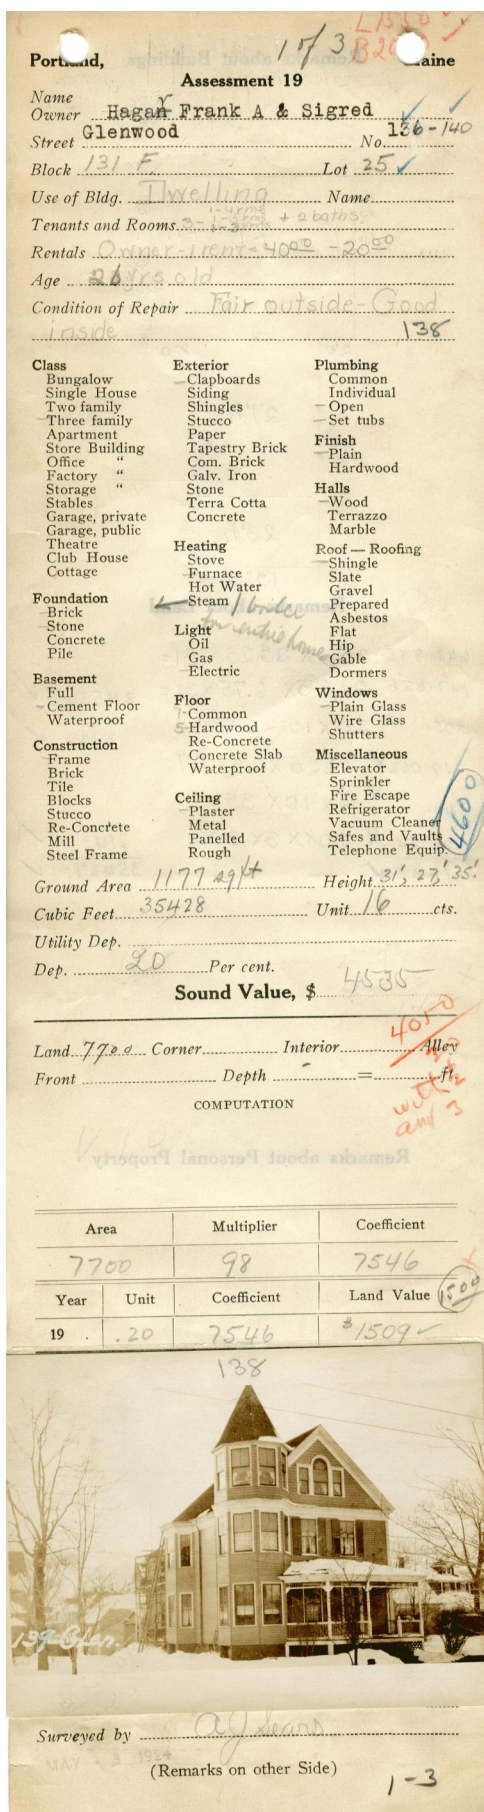 1 of 3
L 1550
Portland, Maine
Assessment 19
Name
Owner Hagan Frank A & Sigred
Street Glenwood No. 136-140
Block 131 F. Lot 25
Use of Bldg. Dwelling Name
Tenants and Rooms 3- + 2 baths
Rentals Owner-1 rent- 40.00 - 20.00
Age 26 yrs old
Condition of Repair Fair outside - Good
inside 138
Class
Bungalow
Single House
Two family
Three family
Apartment
Store Building
Office "
Factory "
Storage "
Stables
Garage, private
Garage, public
Theatre
Club House
Cottage
Foundation
Brick
Stone
Concrete
Pile
Basement
Full
Cement Floor
Waterproof
Construction
Frame
Brick
Tile
Blocks
Stucco
Re-Concrete
Mill
Steel Frame
Exterior
Clapboards
Siding
Shingles
Stucco
Paper
Tapestry Brick
Com. Brick
Galv. Iron
Stone
Terra Cotta
Concrete
Heating
Stove
Furnace
Hot Water
Steam 1 boiler
for entire home
Light
Oil
Gas
Electric
Floor
7- Common
5- Hardwood
Re-Concrete
Concrete Slab
Waterproof
Ceiling
Plaster
Metal
Panelled
Rough
Plumbing
Common
Individual
Open
Set tubs
Finish
Plain
Hardwood
Halls
Wood
Terrazzo
Marble
Roof — Roofing
Shingle
Slate
Gravel
Prepared
Asbestos
Flat
Hip
Gable
Dormers
Windows
Plain Glass
Wire Glass
Shutters
Miscellaneous
Elevator
Sprinkler
Fire Escape
Refrigerator
Vacuum Cleaner
Safes and Vaults
Telephone Equip.
4600
Ground Area 1177 sq ft Height 31', 27', 35'.
Cubic Feet 35428 Unit 16 cts.
Utility Dep.
Dep. 20 Per cent.
Sound Value, $ 4535
4050
Land 7700 Corner Interior Alley
Front Depth = ft.
with 2
and 3
COMPUTATION
Remarks about Personal Property
Area Multiplier Coefficient
7700 98 7546
Year Unit Coefficient Land Value 1500
19 . .20 7546 $1509
138
139 Glen.
Surveyed by A J Sears
MAY 1924
(Remarks on other Side)
1-3